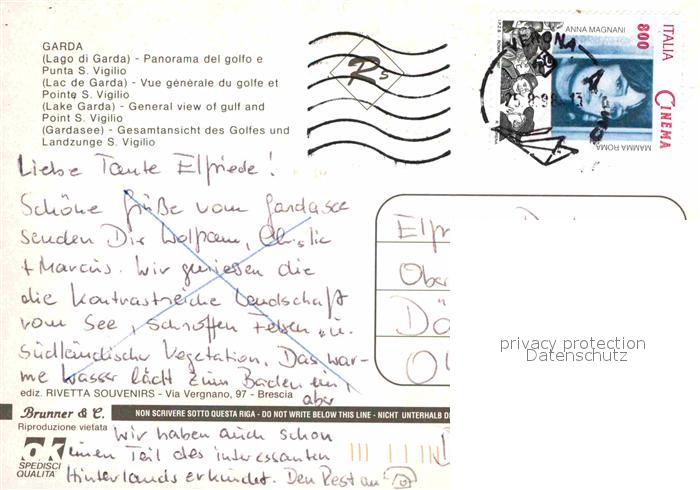 GARDA
(Lago di Garda) - Panorama del golfo e
Punta S. Vigilio
(Lac de Garda) - Vue générale du golfe et
Pointe S. Vigilio
(Lake Garda) - General view of gulf and
Point S. Vigilio
(Gardasee) - Gesamtansicht des Golfes und
Landzunge S. Vigilio
ANNA MAGNANI
ITALIA
800
CINEMA
MAMMA ROMA
VERONA
25.8.98
Liebe Tante Elfriede!
Schöne Grüße vom Gardasee
senden Dir Wolfram, Christie
+ Marcus. Wir geniesen die
die kontrastreiche Landschaft
vom See, schroffen Felsen u.
südländische Vegetation. Das war-
me Wasser lädt zum Baden ein,
aber
ediz. RIVETTA SOUVENIRS - Via Vergnano, 97 - Brescia
Brunner & C.
NON SCRIVERE SOTTO QUESTA RIGA - DO NOT WRITE BELOW THIS LINE - NICHT UNTERHALB DI
Riproduzione vietata
wir haben auch schon
einen Teil des interessanten
Hinterlands erkundet. Den Rest an
ok
SPEDISCI
QUALITÀ
Elfr
Ober
Dö
privacy protection
Datenschutz